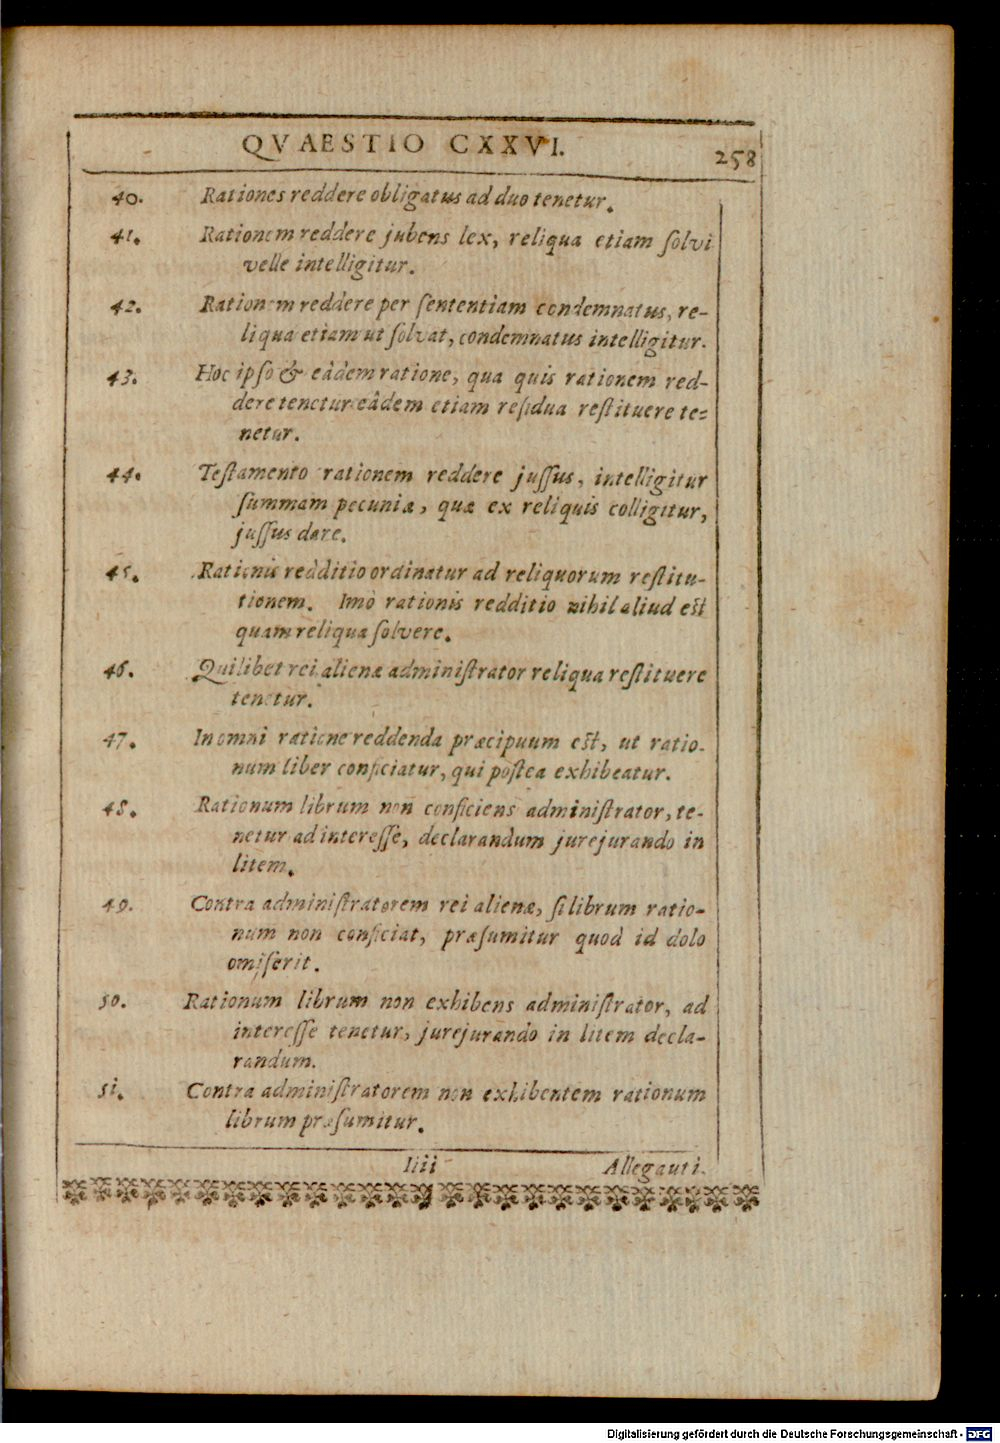 QVAESTIO CXXVI.
258
40. Rationes reddere obligatus ad duo tenetur.
41. Rationem reddere jubens lex, reliqua etiam ſolvi
velle intelligitur.
42. Rationem reddere per ſententiam condemnatus, re-
liqua etiam ut ſolvat, condemnatus intelligitur.
43. Hoc ipſo & eâdem ratione, qua quis rationem red-
dere tenetur eâdem etiam reſidua reſtituere te-
netur.
44. Teſtamento rationem reddere juſſus, intelligitur
ſummam pecuniæ, quæ ex reliquis colligitur,
juſſus dare.
45. Rationis redditio ordinatur ad reliquorum reſtitu-
tionem. Imò rationis redditio nihil aliud eſt
quam reliqua ſolvere.
46. Quilibet rei alienæ adminiſtrator reliqua reſtituere
tenetur.
47. In omni ratione reddenda præcipuum eſt, ut ratio-
num liber conficiatur, qui poſtea exhibeatur.
48. Rationum librum non conficiens adminiſtrator, te-
netur ad intereſſe, declarandum jurejurando in
litem.
49. Contra adminiſtratorem rei alienæ, ſi librum ratio-
num non conficiat, præſumitur quod id dolo
omiſerit.
50. Rationum librum non exhibens adminiſtrator, ad
intereſſe tenetur, jurejurando in litem decla-
randum.
51. Contra adminiſtratorem non exhibentem rationum
librum præſumitur.
Iiii
Allegauti.
Digitalisierung gefördert durch die Deutsche Forschungsgemeinschaft - DFG